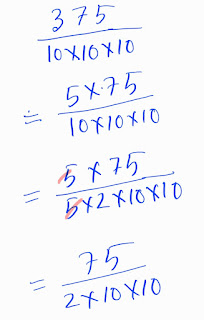 375
10×10×10
= 5×75
10×10×10
= 5×75
5×2×10×10
= 75
2×10×10